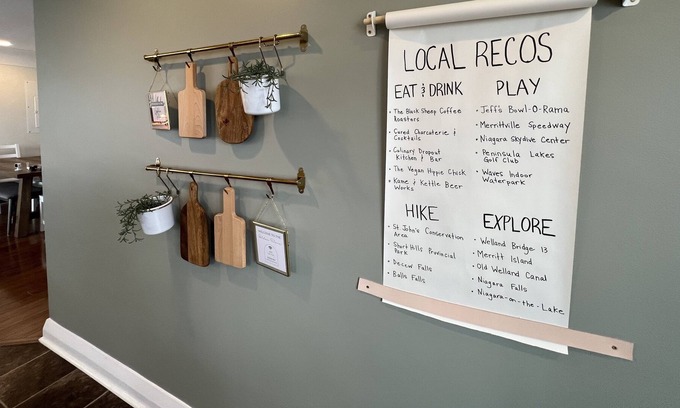 LOCAL RECOS
EAT & DRINK
• The Black Sheep Coffee
Roasters
• Cured Charcuterie &
Cocktails
• Culinary Dropout
Kitchen & Bar
• The Vegan Hippie Chick
• Kame & Kettle Beer
Works
PLAY
• Jeff's Bowl-O-Rama
• Merrittville Speedway
• Niagara Skydive Center
• Peninsula Lakes
Golf Club
• Waves Indoor
Waterpark
HIKE
• St. John's Conservation
Area
• Short Hills Provincial
Park
• Decew Falls
• Balls Falls
EXPLORE
• Welland Bridge 13
• Merritt Island
• Old Welland Canal
• Niagara Falls
• Niagara-on-the-Lake